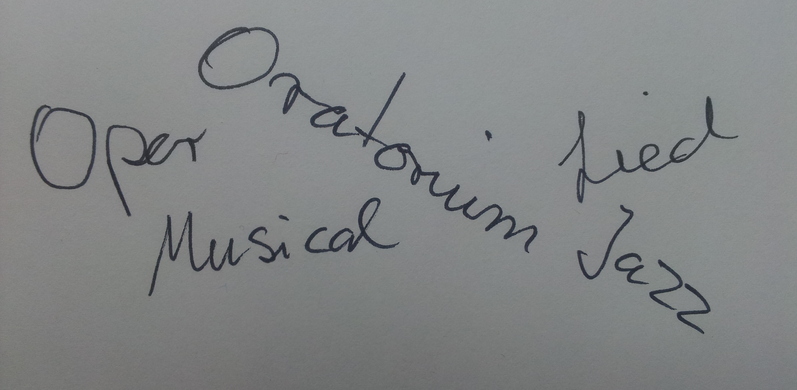 Oratorium
Oper
Lied
Musical
Jazz